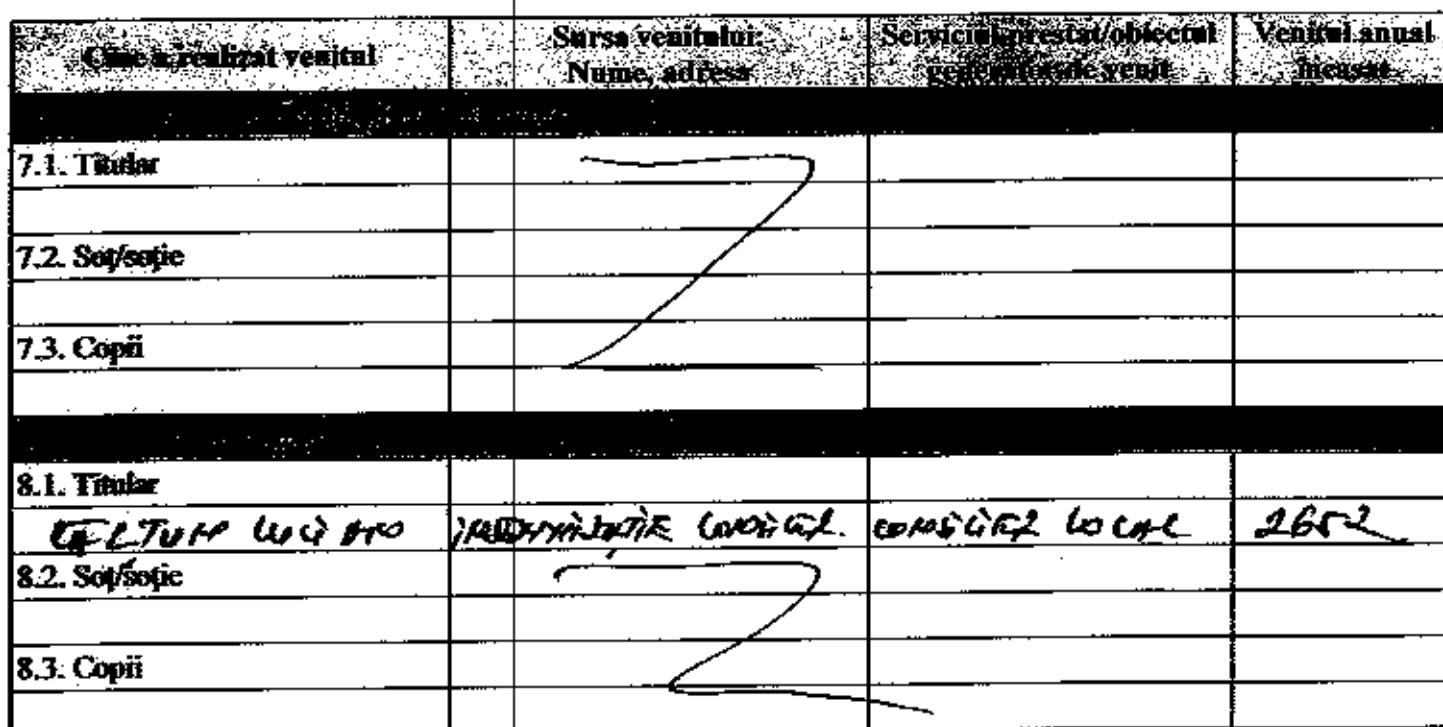 Cine a realizat venitul
Sursa venitului: Nume, adresa
Serviciul prestat/obiectul generator de venit
Venitul anual încasat
7.1. Titular
7.2. Soț/soție
7.3. Copii
8.1. Titular
CONSILIER LOCAL 2652
8.2. Soț/soție
8.3. Copii